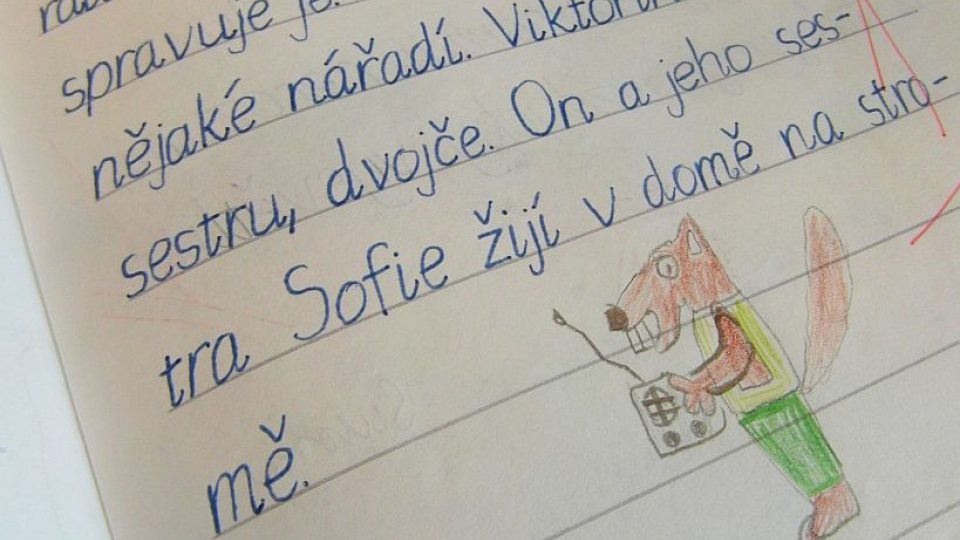 spravuje je.
nějaké nářadí.
sestru, dvojče. On a jeho ses-
tra Sofie žijí v domě na stro-
mě.